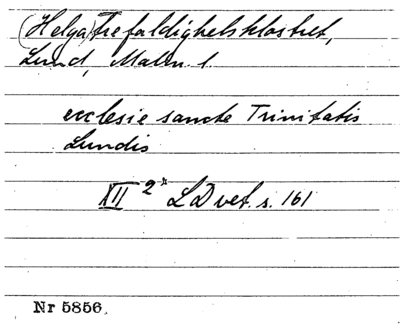 (Helga) Trefaldighetsklostret,
Lund, Malm. l.
ecclesie sancte Trinitatis
Lundis
XII 2 LD vet. s. 161
Nr 5856.